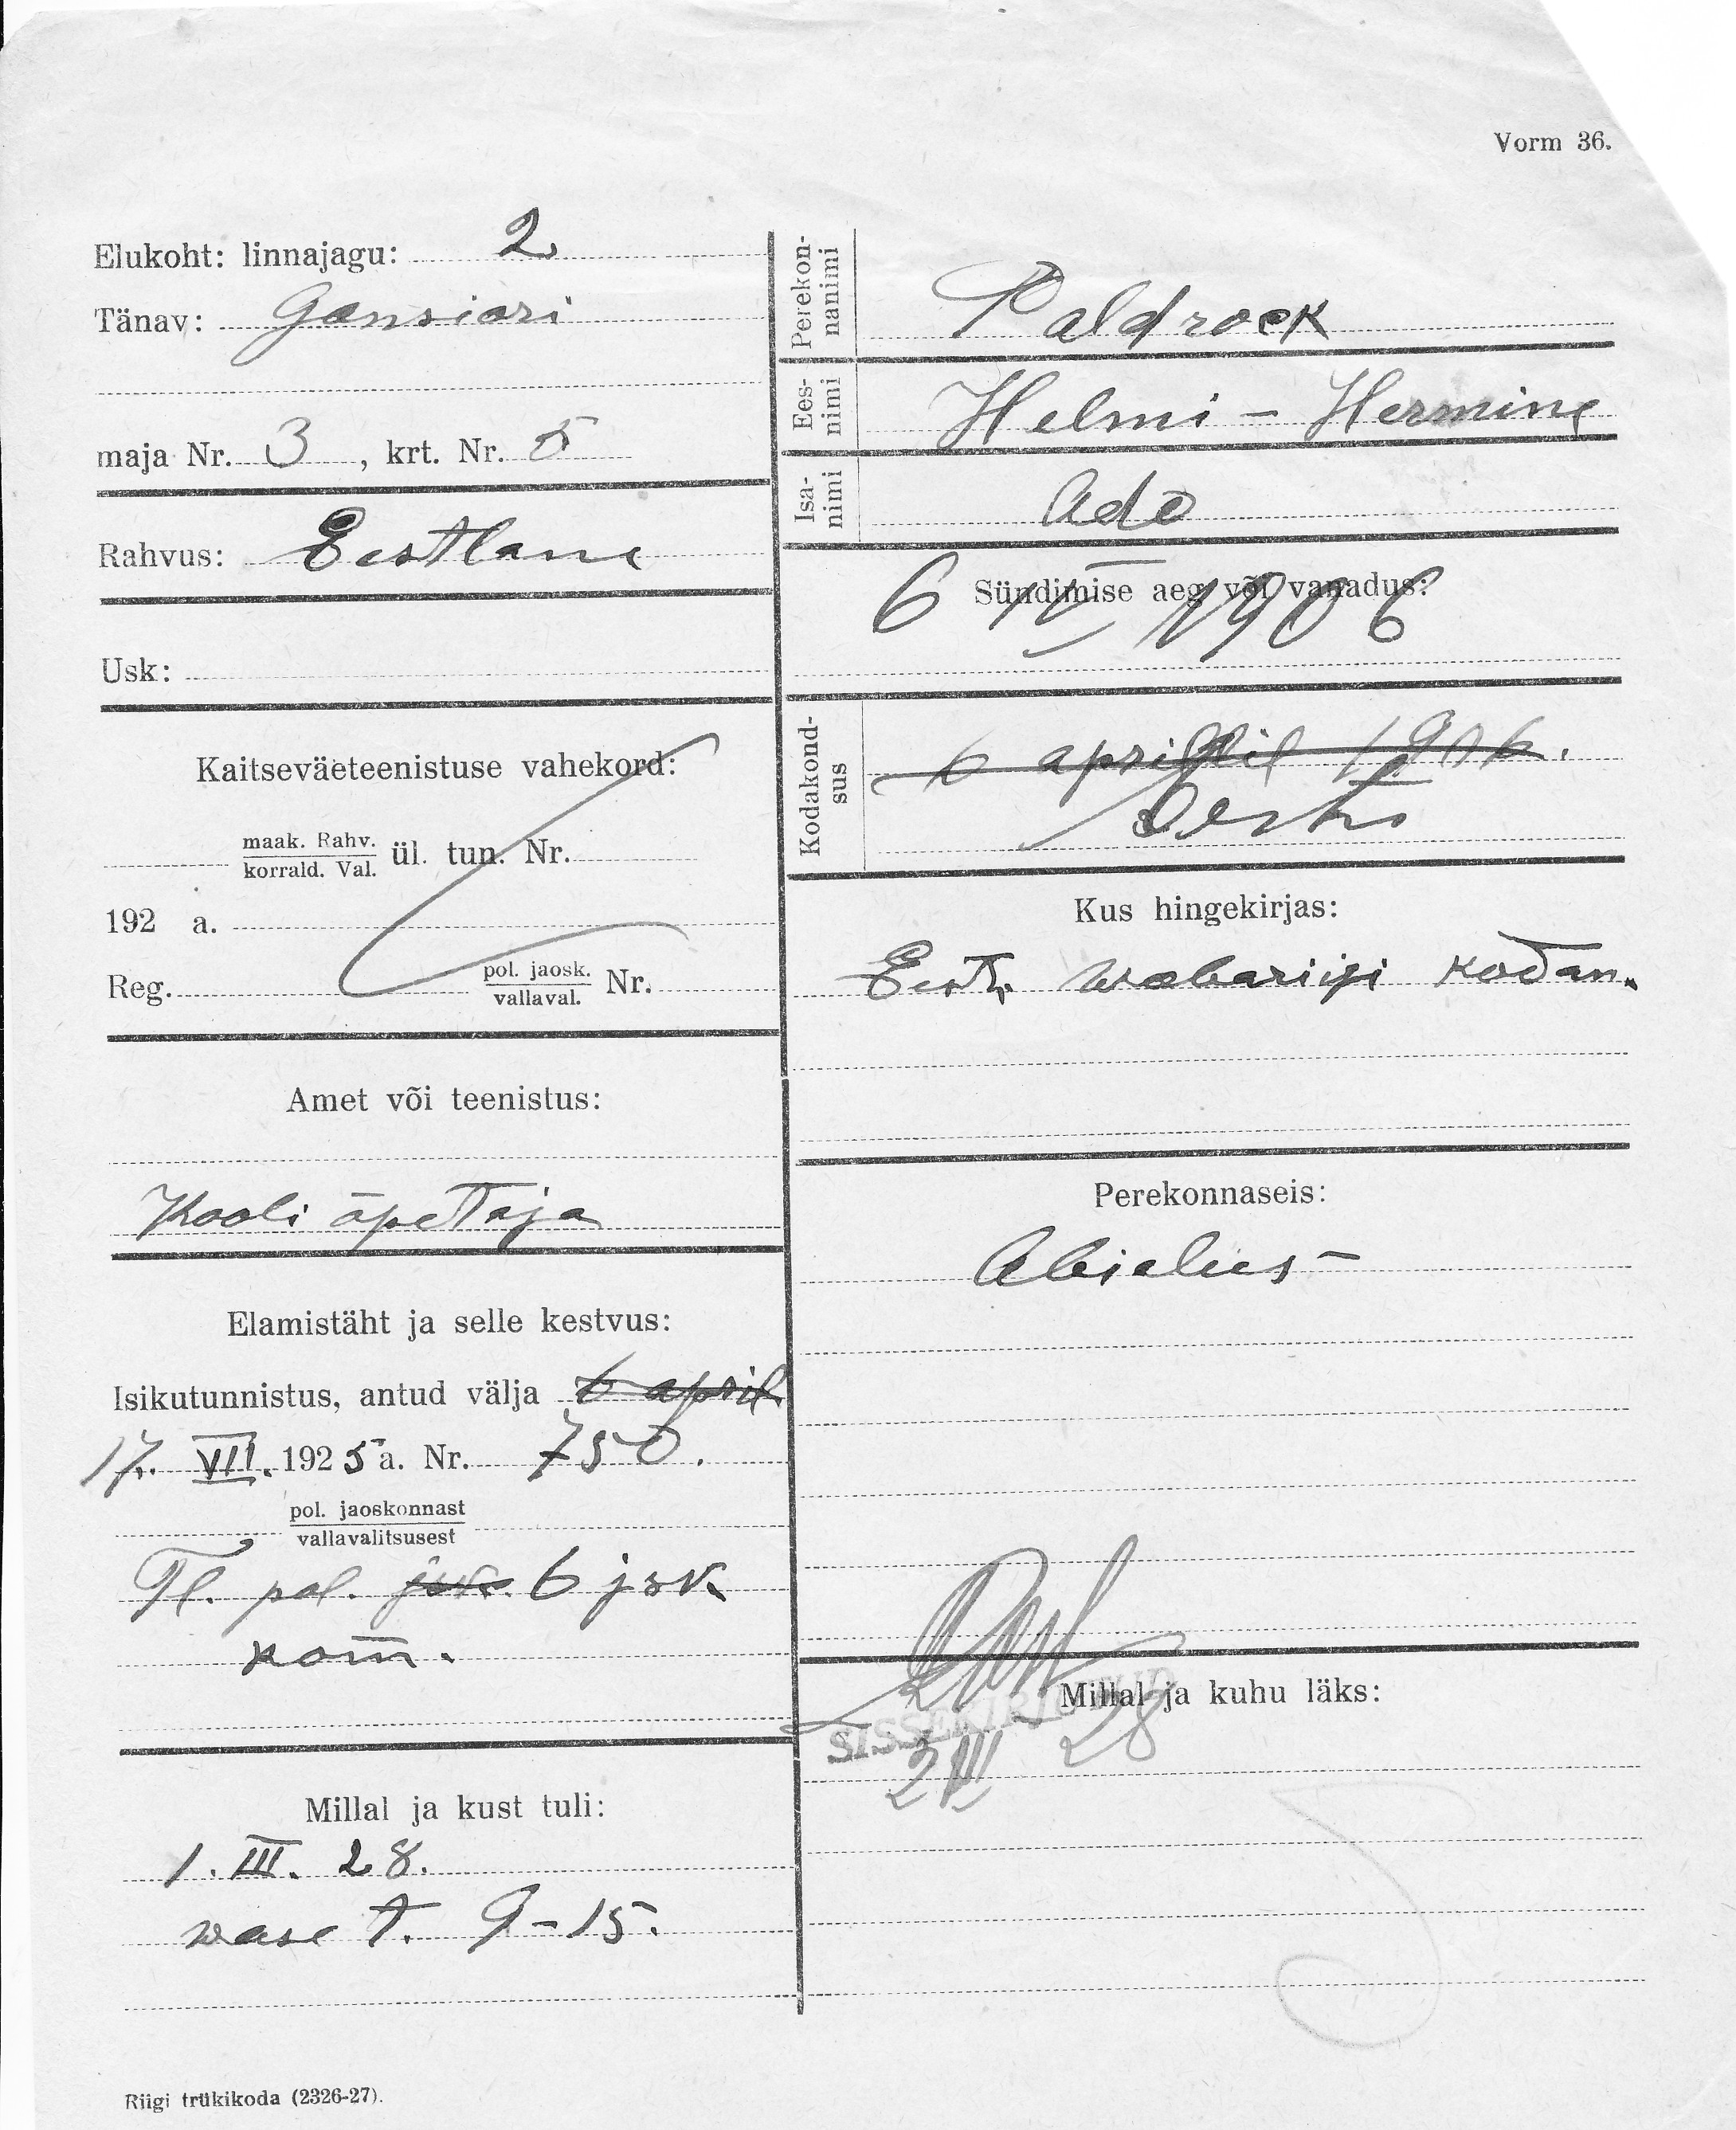 Vorm 36.
Elukoht: linnajagu: 2
Tänav: Gonsiori
maja Nr. 3, krt. Nr. 5
Rahvus: Eestlane
Usk:
Kaitseväeteenistuse vahekord:
maak. Rahv.
korrald. Val. ül. tun. Nr.
192 a.
Reg. pol. jaosk. Nr.
vallaval.
Amet või teenistus:
Kooli õpetaja
Elamistäht ja selle kestvus:
Isikutunnistus, antud välja 6 april
17. VII. 1925 a. Nr. 750.
pol. jaoskonnast
vallavalitsusest
Tl. pol. jsk. 6 jsk
kom.
Millal ja kust tuli:
1. III. 28.
wase t. 9-15.
Perekon-
nanimi
Paldrock
Ees-
nimi
Helmi - Hermine
Isa-
nimi
Ado
Sündimise aeg või vanadus:
6 IV 1906
Kodakond-
sus
6 aprillil 1906.
Eesti
Kus hingekirjas:
Eesti wabariigi kodan.
Perekonnaseis:
Abielus
Millal ja kuhu läks:
SISSEKIRJUTUD
2 III 28
Riigi trükikoda (2326-27).